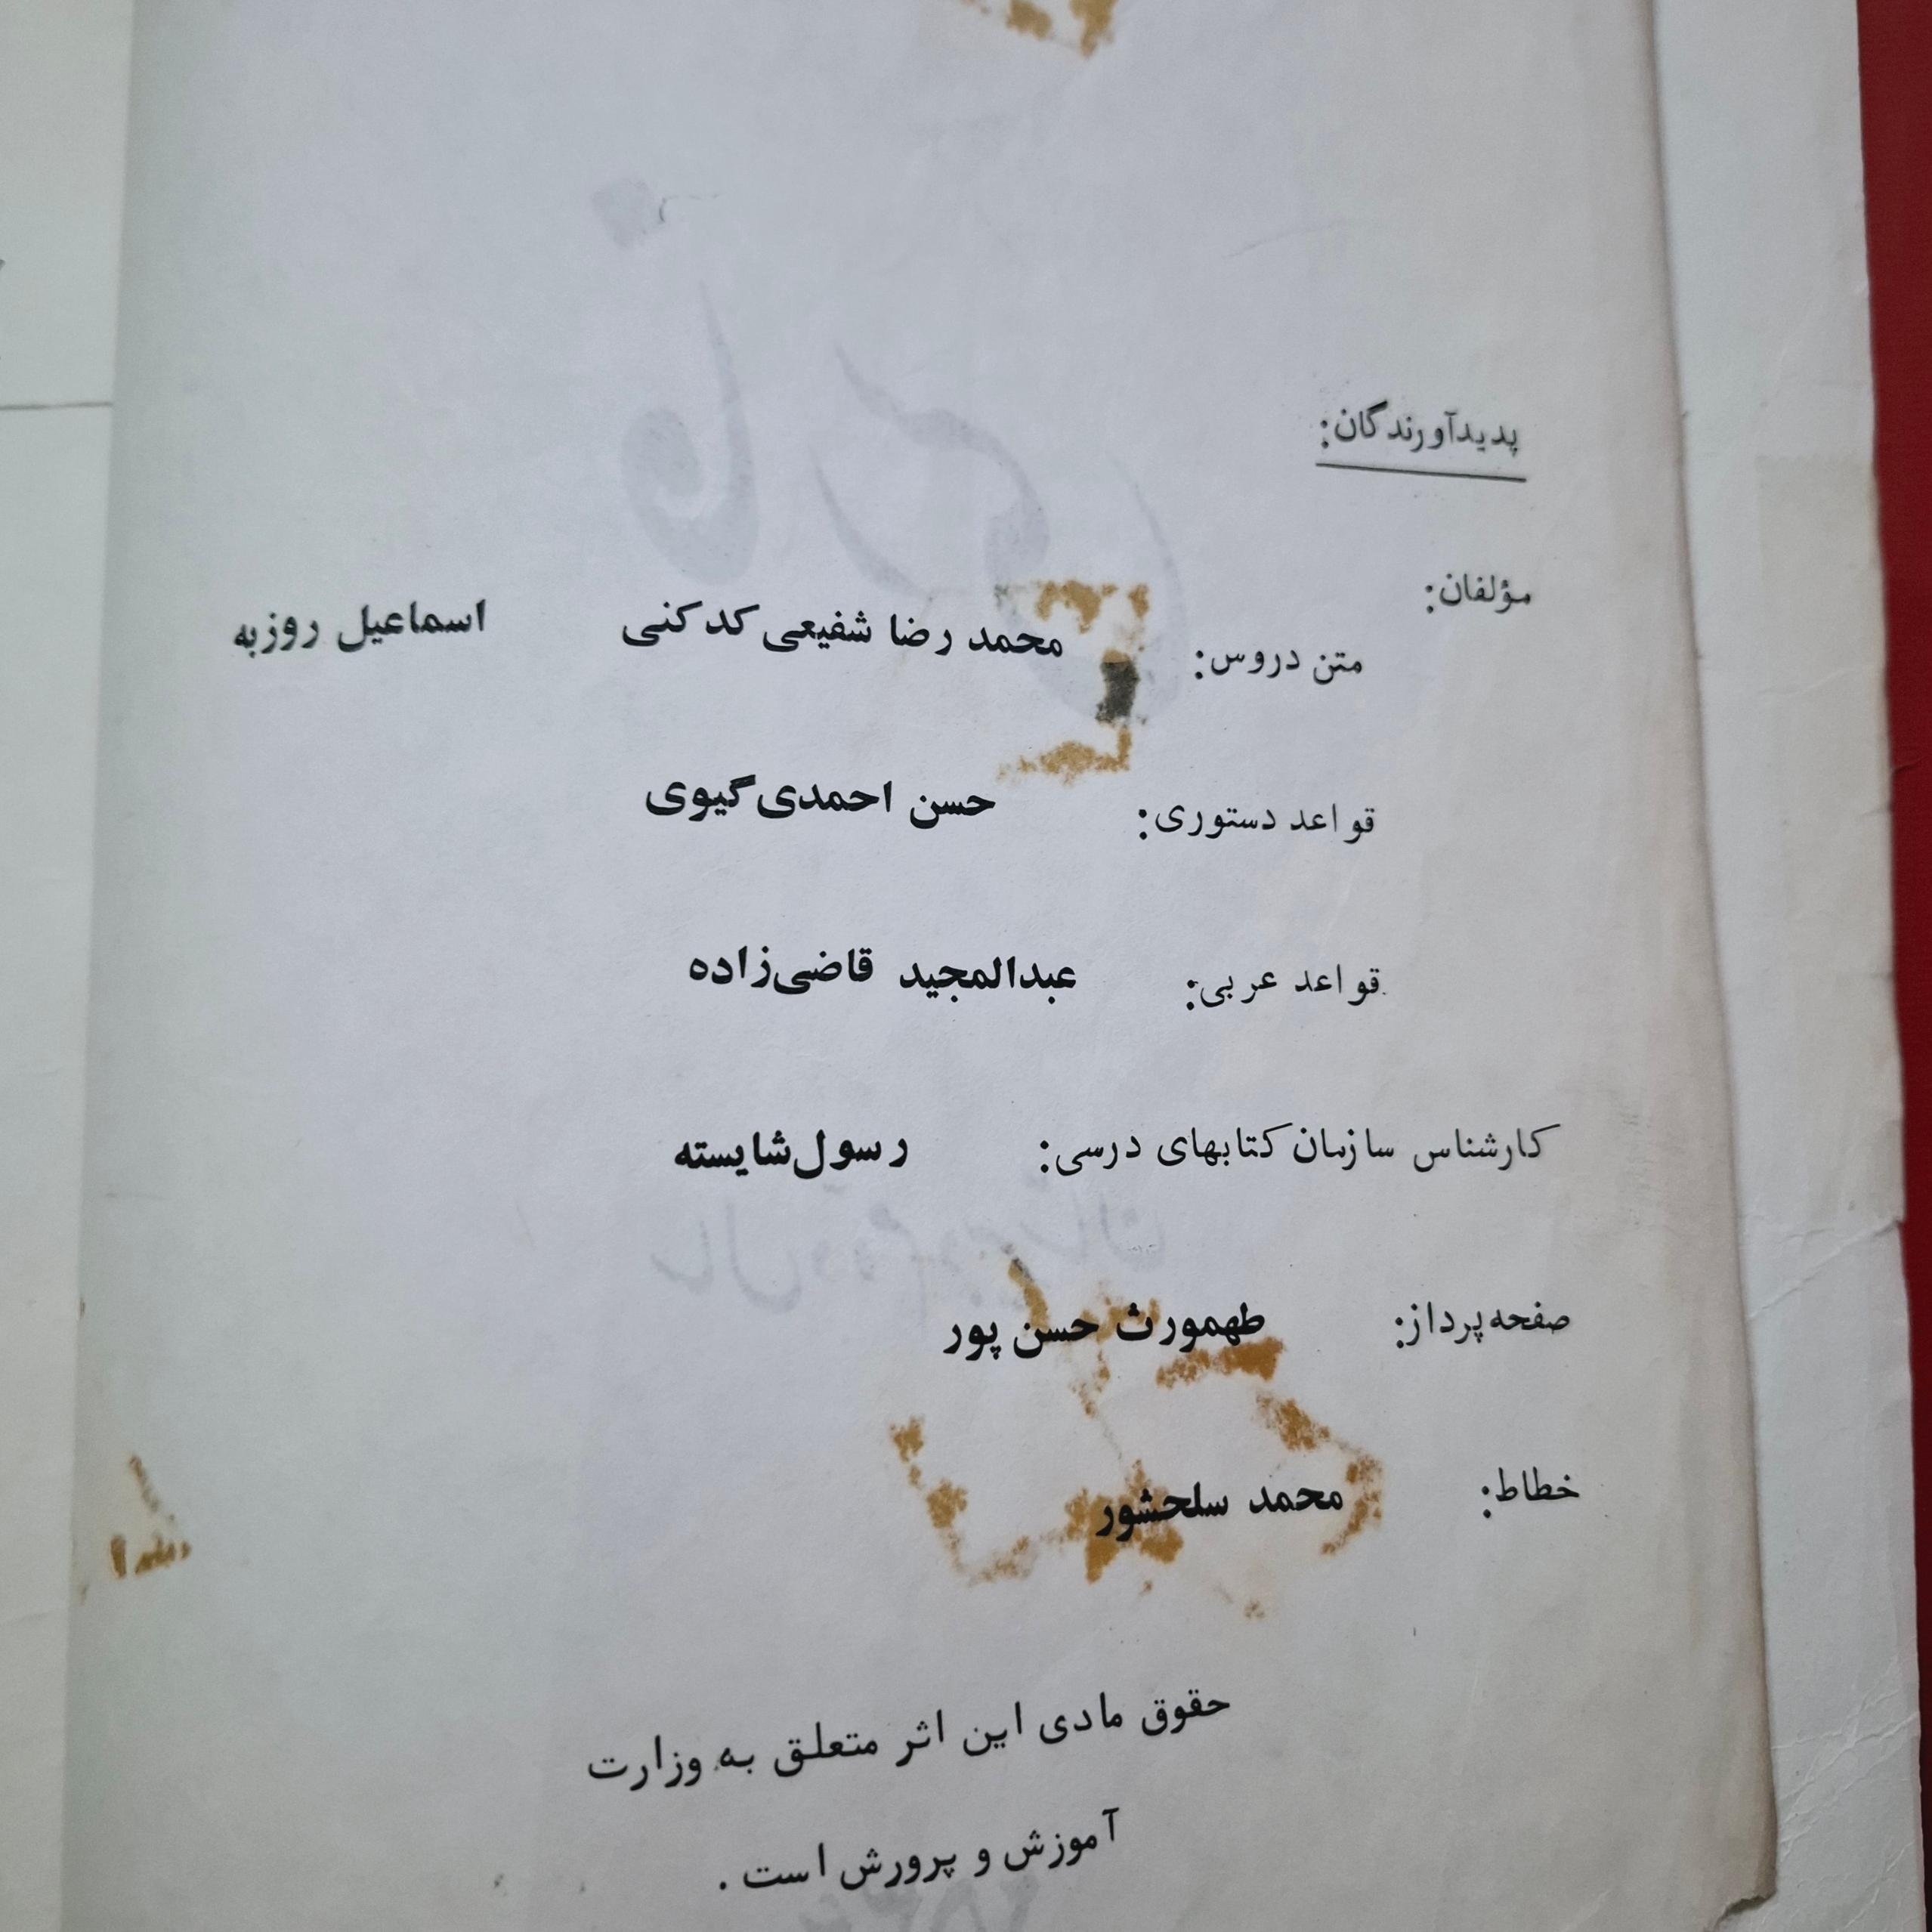 پدیدآورندگان:
مؤلفان:
متن دروس: محمد رضا شفیعی کدکنی اسماعیل روزبه
قواعد دستوری: حسن احمدی گیوی
قواعد عربی: عبدالمجید قاضی‌زاده
کارشناس سازمان کتابهای درسی: رسول شایسته
صفحه‌پرداز: طهمورث حسن پور
خطاط: محمد سلحشور
حقوق مادی این اثر متعلق به وزارت
آموزش و پرورش است .